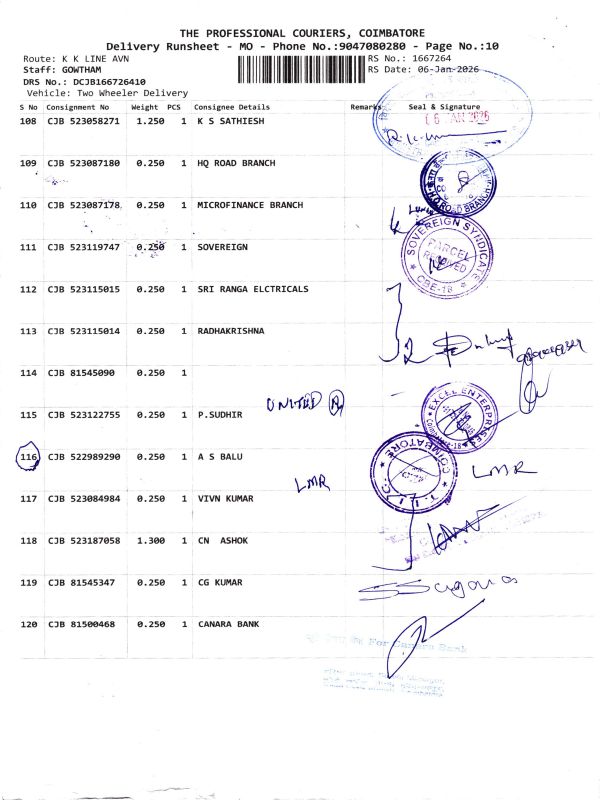 THE PROFESSIONAL COURIERS, COIMBATORE
Delivery Runsheet - MO - Phone No.:9047080280 - Page No.:10
Route: K K LINE AVN RS No.: 1667264
Staff: GOWTHAM RS Date: 06-Jan-2026
DRS No.: DCJB166726410
Vehicle: Two Wheeler Delivery
S No Consignment No Weight PCS Consignee Details Remarks Seal & Signature
108 CJB 523058271 1.250 1 K S SATHIESH
109 CJB 523087180 0.250 1 HQ ROAD BRANCH
110 CJB 523087178 0.250 1 MICROFINANCE BRANCH
111 CJB 523119747 0.250 1 SOVEREIGN SOVEREIGN SYNDICATE PARCEL RECEIVED CBE-18
112 CJB 523115015 0.250 1 SRI RANGA ELCTRICALS
113 CJB 523115014 0.250 1 RADHAKRISHNA
114 CJB 81545090 0.250 1
UNITED
115 CJB 523122755 0.250 1 P.SUDHIR EXCEL ENTERPRISES
116 CJB 522989290 0.250 1 A S BALU COIMBATORE LMR
LMR
117 CJB 523084984 0.250 1 VIVN KUMAR
118 CJB 523187058 1.300 1 CN ASHOK
119 CJB 81545347 0.250 1 CG KUMAR
120 CJB 81500468 0.250 1 CANARA BANK
For Canara Bank